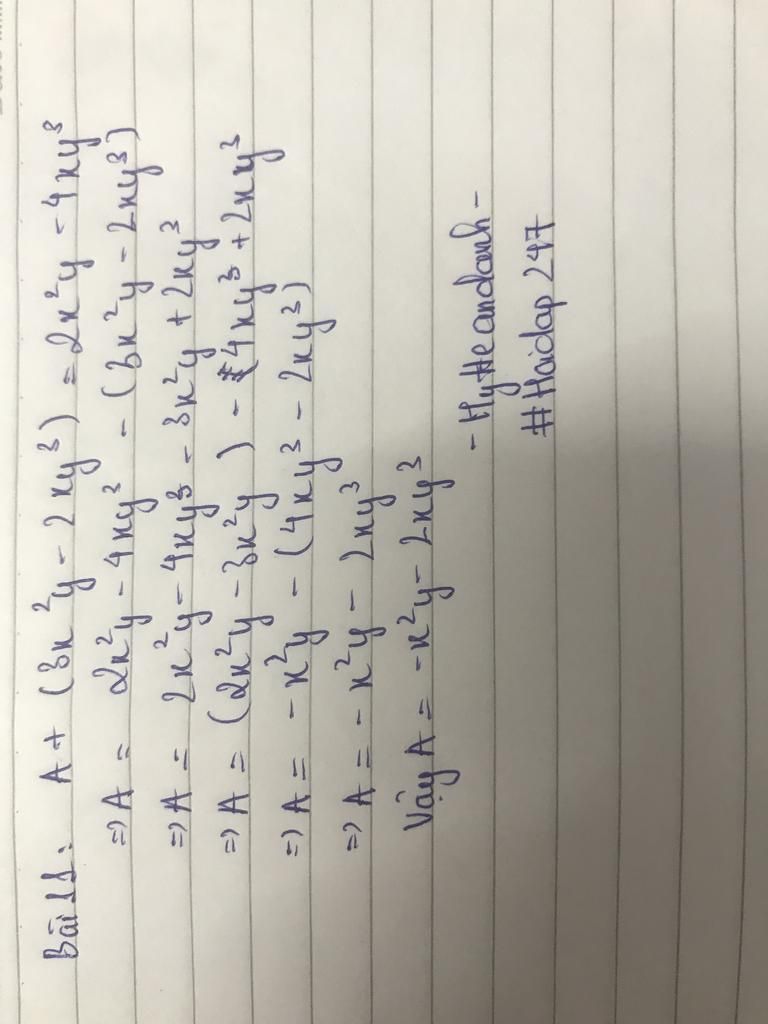 Bài 11: A + (3x²y - 2xy³) = 2x²y - 4xy³
=> A = 2x²y - 4xy³ - (3x²y - 2xy³)
=> A = 2x²y - 4xy³ - 3x²y + 2xy³
=> A = (2x²y - 3x²y) - 4xy³ + 2xy³
=> A = - x²y - (4xy³ - 2xy³)
=> A = - x²y - 2xy³
Vậy A = -x²y - 2xy³
- HyHeandanh -
#Hoidap247